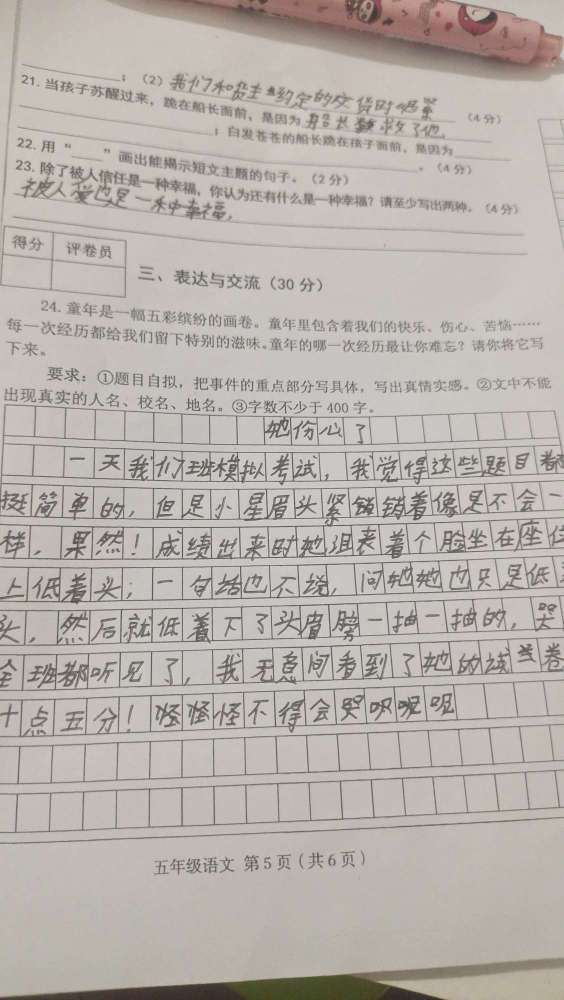 ；（2）我们和货主约定的交货时间紧 （4分）
21. 当孩子苏醒过来，跪在船长面前，是因为船长救了他，
；白发苍苍的船长跪在孩子面前，是因为
。（4分）
22. 用“____”画出能揭示短文主题的句子。（2分）
23. 除了被人信任是一种幸福，你认为还有什么是一种幸福？请至少写出两种。（4分）
被人爱也是一种幸福，
得分 评卷员
三、表达与交流（30分）
24. 童年是一幅五彩缤纷的画卷。童年里包含着我们的快乐、伤心、苦恼……
每一次经历都给我们留下特别的滋味。童年的哪一次经历最让你难忘？请你将它写
下来。
要求：①题目自拟，把事件的重点部分写具体，写出真情实感。②文中不能
出现真实的人名、校名、地名。③字数不少于 400 字。
她份心了
一天我们班模拟考试，我觉得这些题目都
挺简单的，但是小星眉头紧锁锁着像是不会一
样，果然！成绩出来时她沮丧着个脸坐在座位
上低着头；一句话也不说，问她她也只是低
头，然后就低着下了头肩膀一抽一抽的，哭
全班都听见了，我无意间看到了她的试卷
十点五分！怪怪怪不得会哭呗呢呢
五年级语文 第5页（共6页）